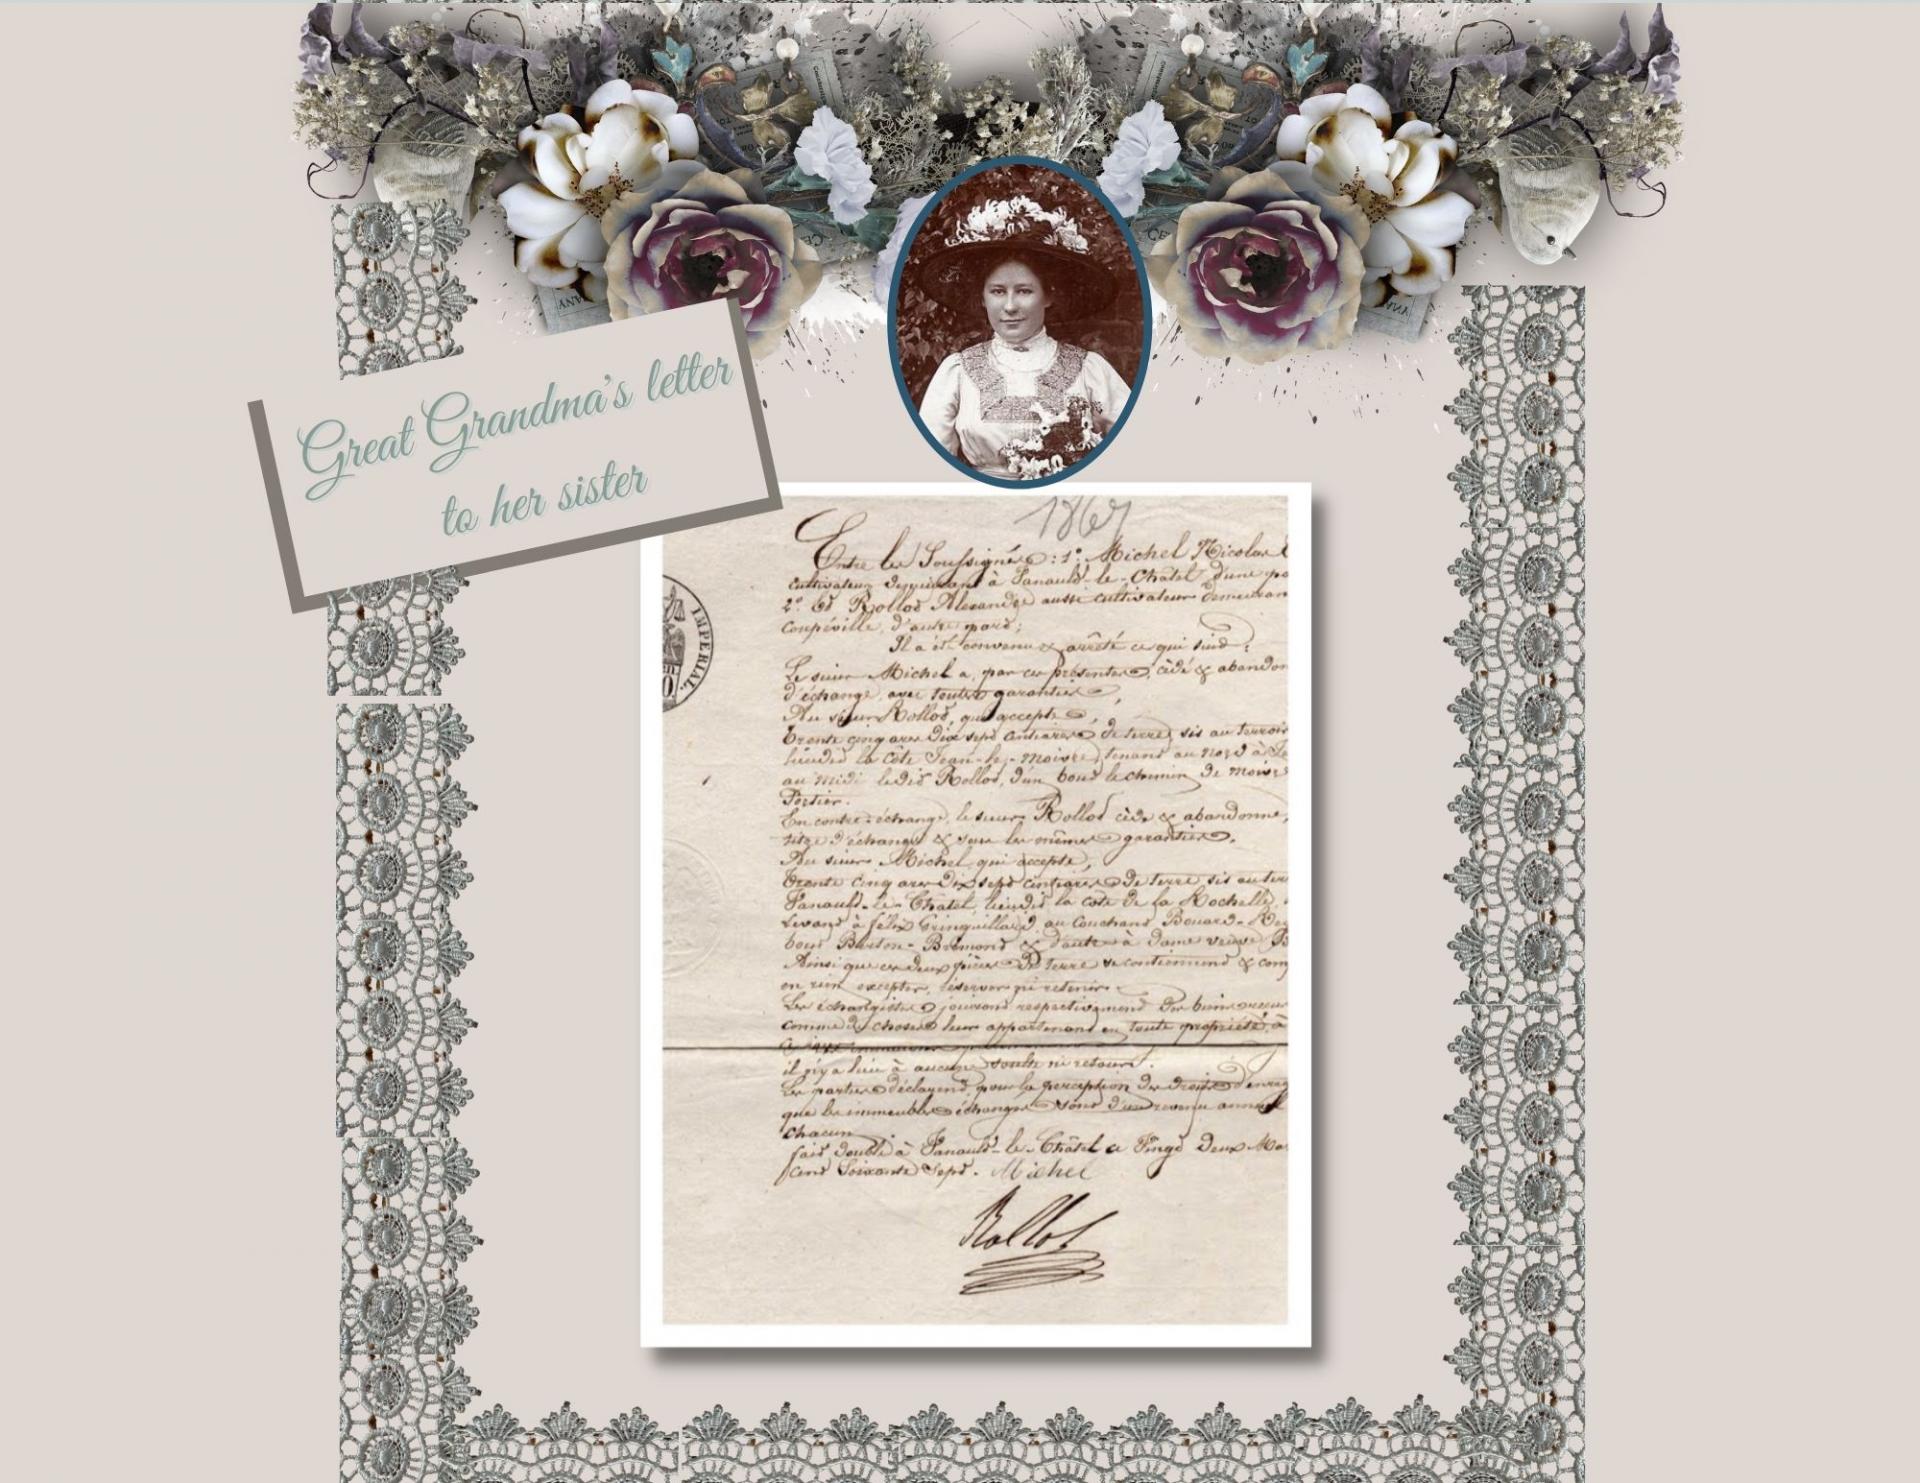 Great Grandma's letter
to her sister
1867
Entre les Soussignés : 1° Michel Nicolas
cultivateur demeurant à Vanault-le-Châtel d'une
2° Et Rollot Alexandre aussi cultivateur
coupéville, d'autre part;
Il a été convenu & arrêté ce qui suit :
Le sieur Michel a, par ces présentes, cédé &
d'échange, avec toutes garanties,
Au sieur Rollot, qui accepte,
Trente cinq ares Dix sept centiares de terre, sis au terroir
lieudit la côte Jean-le-moivre, tenant au nord à
au midi ledit Rollot, d'un bout le chemin de moivre
Portier.
En contre-échange, le sieur Rollot cède & abandonne,
titre d'échange & sous les mêmes garanties,
Au sieur Michel, qui accepte,
Trente cinq ares Dix sept centiares de terre sis au
Vanault-le-Châtel, lieudit la côte de la Rochelle,
Levant à félix Gringuillard, au Couchant
bout & d'autre à Dame veuve
Ainsi que ces deux pièces De terre se contiennent &
en rien excepter, réserver ni retenir.
Les échangistes jouiront respectivement des biens
comme de choses leur appartenant en toute propriété, à
il n'y a lieu à aucune soulte ni retour.
Les parties déclarent, pour la perception des droits
que les immeubles échangés sont d'un revenu annuel
chacun
fait double à Vanault-le-Châtel ce Vingt Deux
Cent Soixante Sept. Michel
Rollot
IMPERIAL.